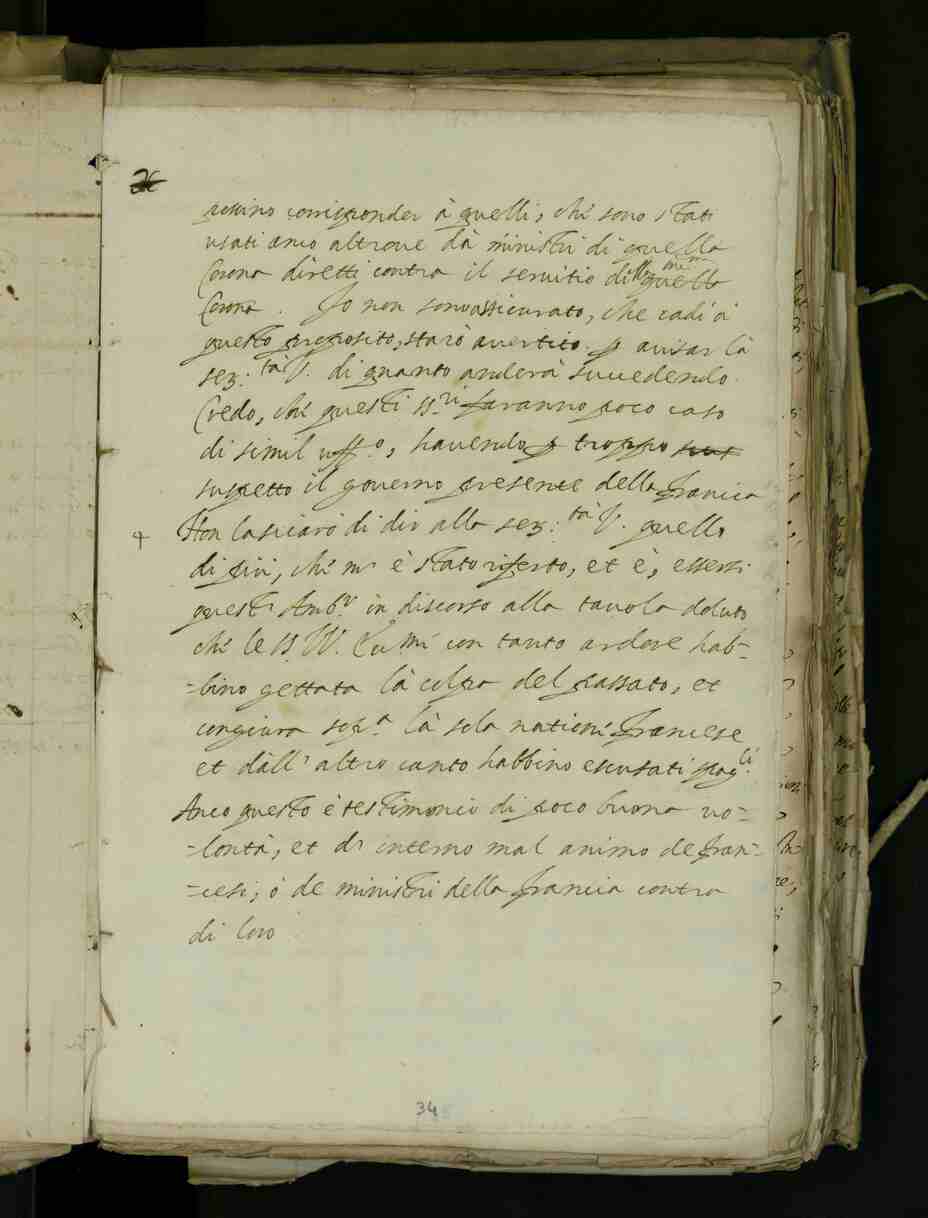 possino corrisponder à quelli, che sono stati
usati anco altrove dà ministri di quella
Corona diretti contra il servitio di quella
Corona. Io non sono assicurato, che cadi à
questo proposito, starò avertito p avisar là
Ser.tà V. di quanto anderà succedendo.
Credo, che questi ss.ri faranno poco caso
di simil uff.o, havendo p troppo
suspetto il governo presente della Francia
Non lasciarò di dir alla Ser.tà V. quello
di più, che m' è stato riferto, et è, essersi
questi Amb.ri in discorso alla tavola doluto
che le con tanto ardore hab=
=bino gettata là colpa del passato, et
congiura sop.a là sola natione francese
et dall' altro canto habbino escusati spag.li
Anco questo è testimonio di poco buona vo=
=lontà, et di interno mal animo de fran=
=cesi, ò de ministri della Francia contra
di loro
34